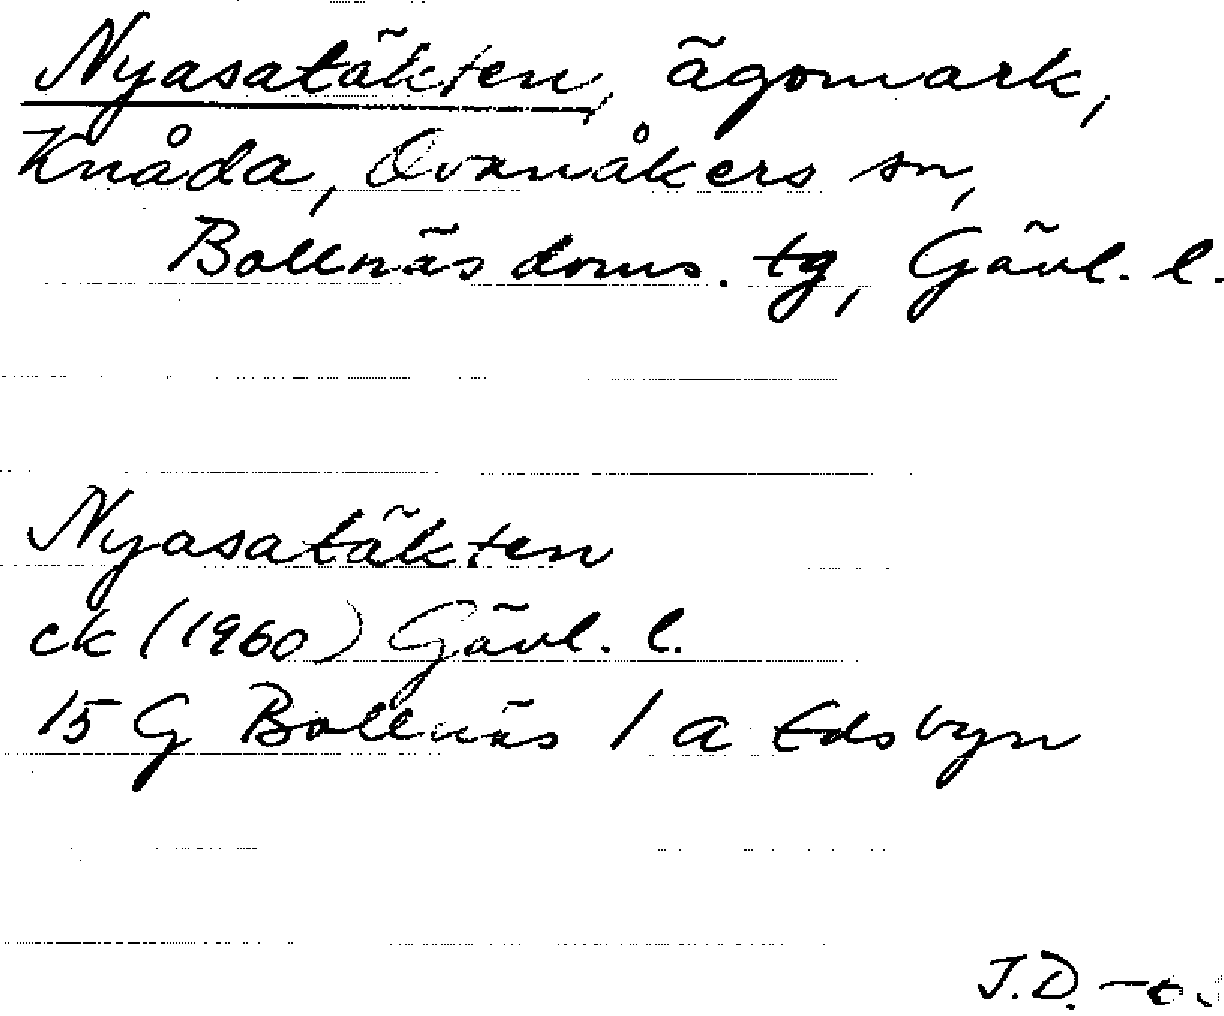 Nyasatäkten, ägomark,
Knåda, Ovanåkers sn,
Bollnäs doms. tg, Gävl. l.
Nyasatäkten
ek (1960) Gävl. l.
15 G Bollnäs 1 a Edsbyn
J.D.